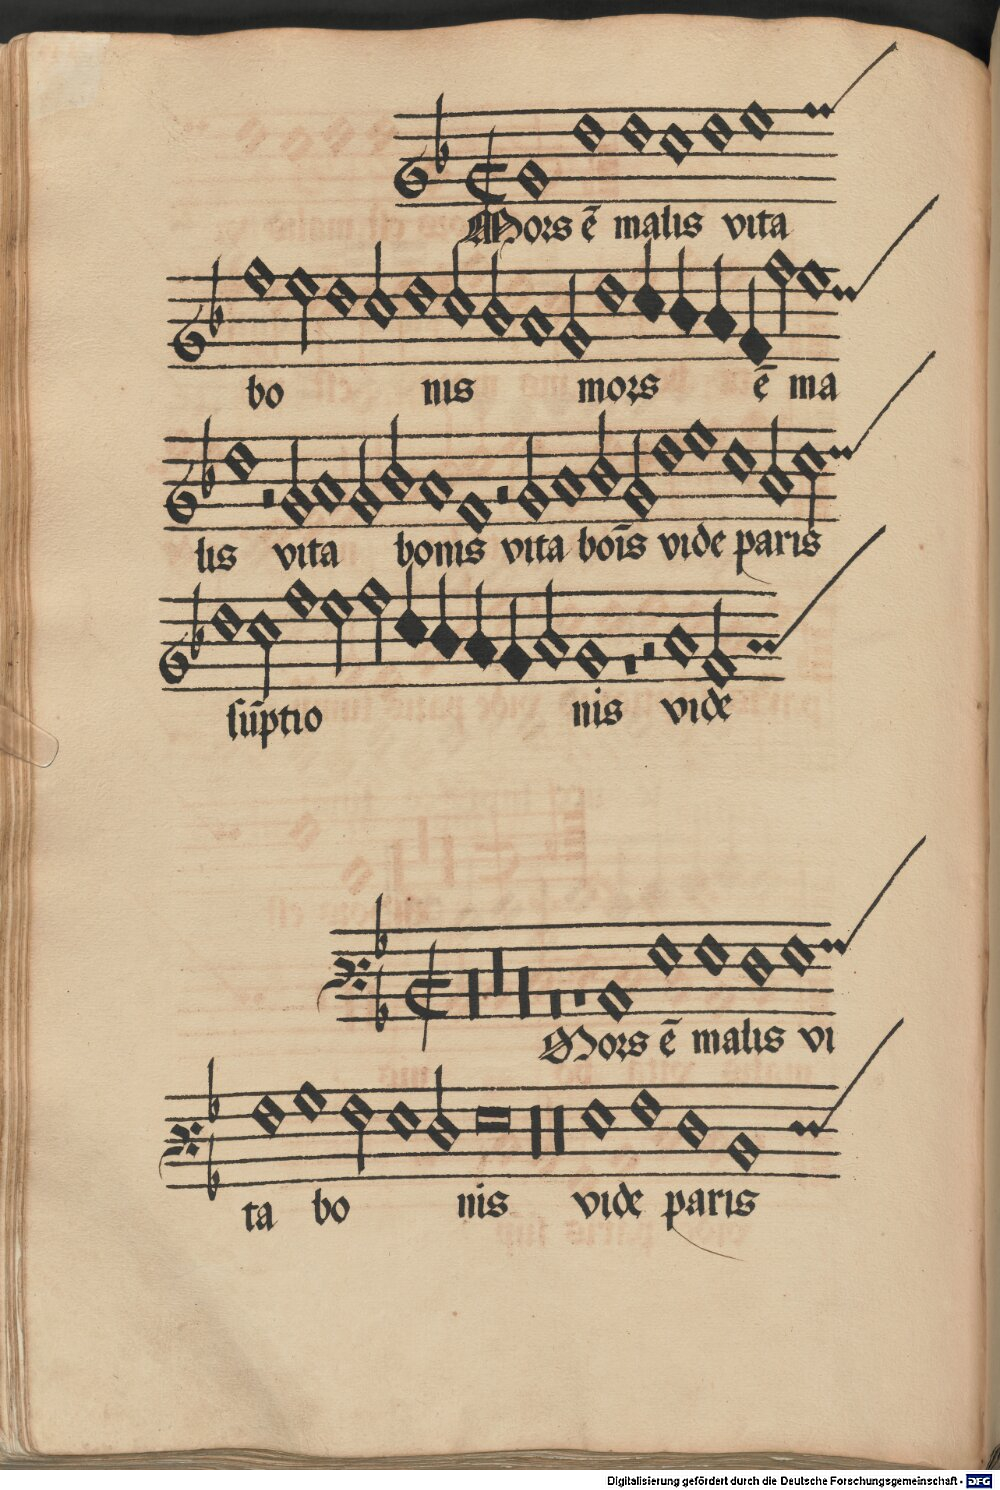 Mors ē malis vita
bo nis mors ē ma
lis vita bonis vita boīs vide paris
sūptio nis vide
Mors ē malis vi
ta bo nis vide paris
Digitalisierung gefördert durch die Deutsche Forschungsgemeinschaft - DFG